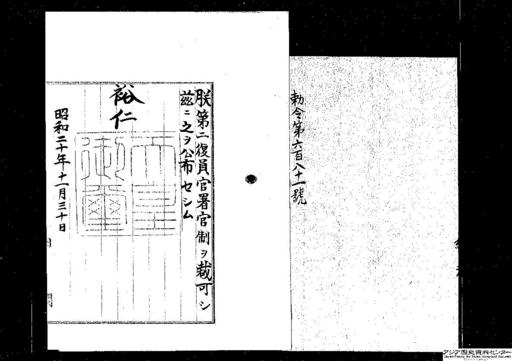 勅令第六百八十一號
朕第二復員官署官制ヲ裁可シ
茲ニ之ヲ公布セシム
裕仁
天皇御璽
昭和二十年十一月三十日
アジア歴史資料センター